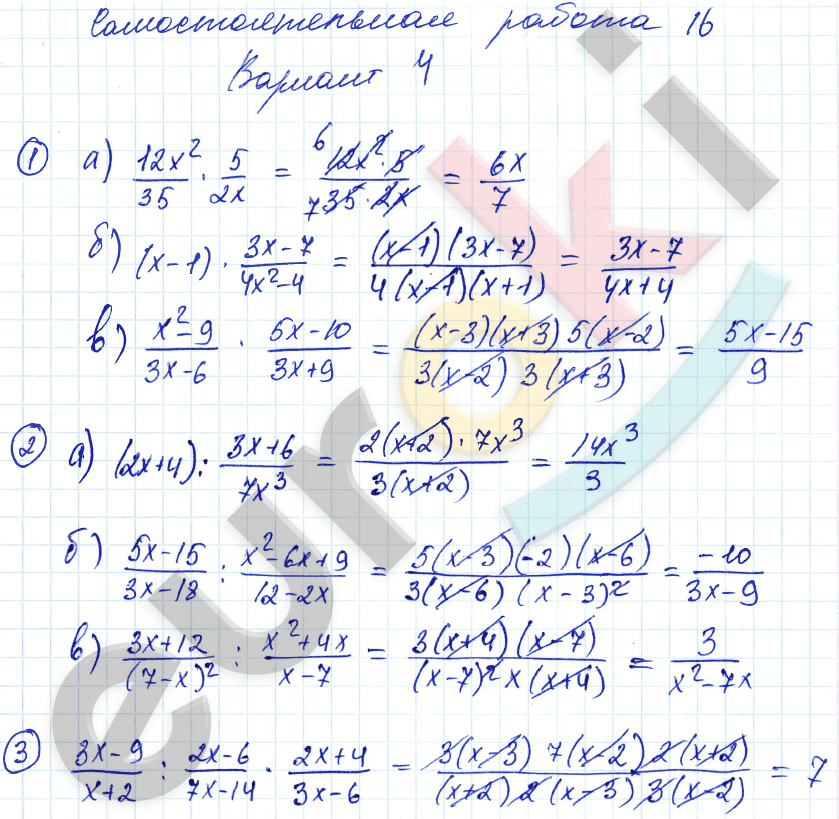 Самостоятельная работа 16
Вариант 4
① а) 12x²/35 · 5/2x = 12x²·5/35·2x = 6x/7
б) (x-1) · 3x-7/4x²-4 = (x-1)(3x-7)/4(x-1)(x+1) = 3x-7/4x+4
в) x²-9/3x-6 · 5x-10/3x+9 = (x-3)(x+3)5(x-2)/3(x-2)3(x+3) = 5x-15/9
② а) (2x+4) : 3x+6/7x³ = 2(x+2)·7x³/3(x+2) = 14x³/3
б) 5x-15/3x-18 : x²-6x+9/12-2x = 5(x-3)(-2)(x-6)/3(x-6)(x-3)² = -10/3x-9
в) 3x+12/(7-x)² : x²+4x/x-7 = 3(x+4)(x-7)/(x-7)²x(x+4) = 3/x²-7x
③ 3x-9/x+2 : 2x-6/7x-14 · 2x+4/3x-6 = 3(x-3)7(x-2)2(x+2)/(x+2)2(x-3)3(x-2) = 7
euroki